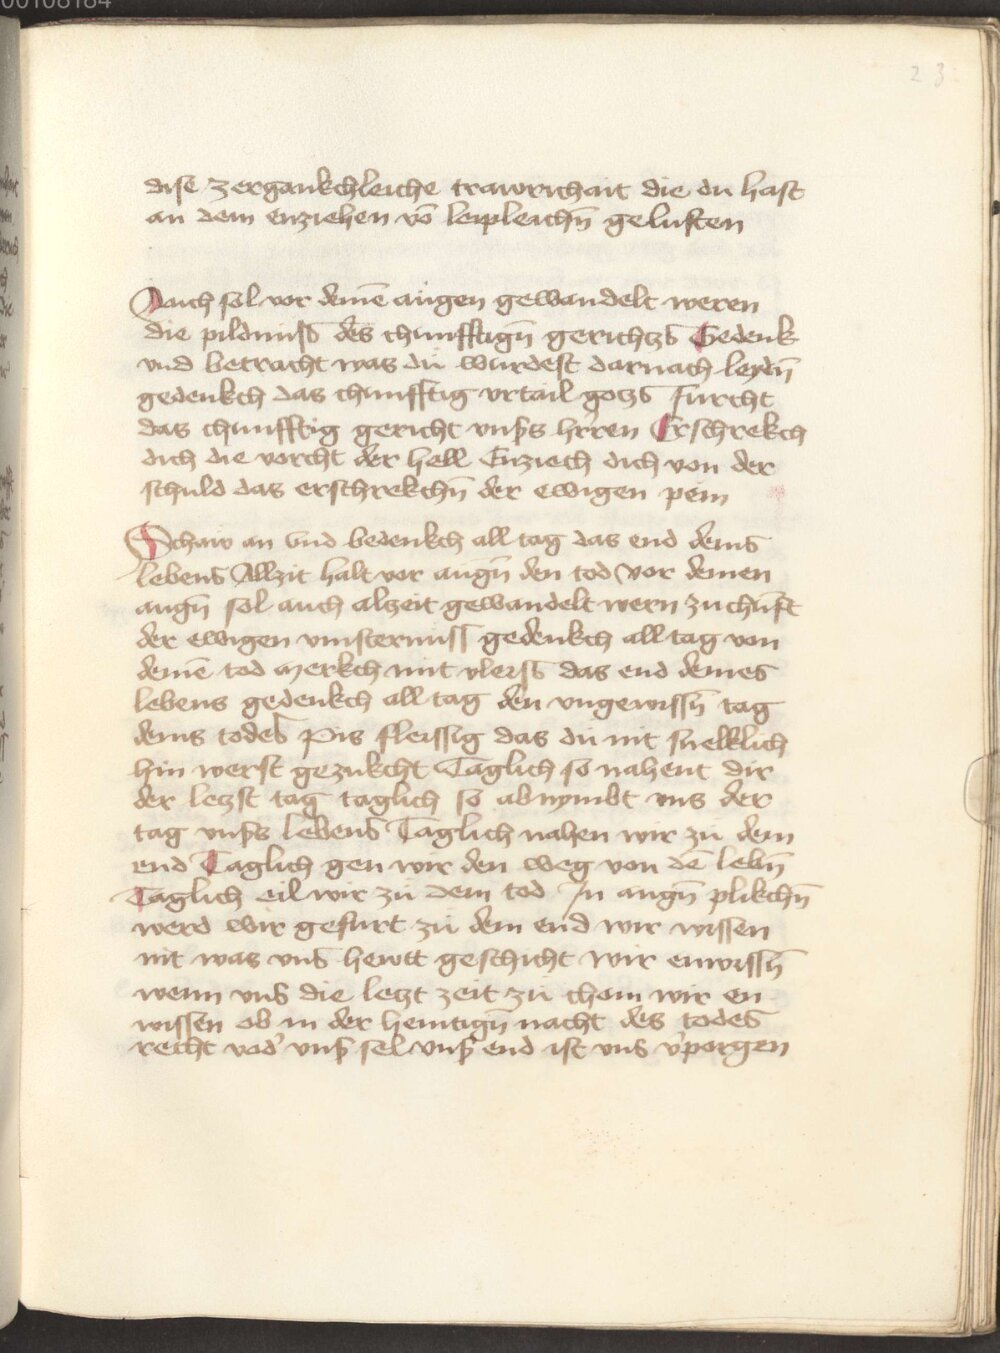 23
dise zergankchleiche trawrichait die du hast
an dem enziehen vō leipleichn̄ gelusten
Auch sol vor deinē augen gewandelt weren
die pildnuss des chunfftign̄ gerichtzs Gedenk
vnd betracht was du wurdest darnach leydn̄
gedenkch das chunfftig vrtail gotzs furcht
das chunfftig gericht vnsers hrren Erschrekch
dich die vorcht der hell Enziech dich von der
schuld das erschrekchn̄ der ewigen pein
Schaw an vnd bedenkch all tag das end deins
lebens Allzit halt vor augn̄ den tod vor deinen
augn̄ sol auch alzeit gewandelt wern zuchūft
der ewigen vinsternuss gedenkch all tag von
deinē tod merkch mit vleiss das end deines
lebens gedenkch all tag den vngewissn̄ tag
deins todes Pis fleissig das du nit snelklich
hin werst gezukcht Taglich so nahent dir
der letzst tag taglich so abnymbt vns der
tag vnsers lebens Taglich nahen wir zu dem
end Taglich gen wir den weg von dē lebn̄
Taglich eil wir zu dem tod In augn̄ plikchn̄
werd wir gefurt zu dem end wir wissen
nit was vns hewtt geschicht wir enwissn̄
wenn vns die letzt zeit zu chom wir en
wissen ob in der heintign̄ nacht des todes
recht vod' vnser sel vnser end ist vns v'porgen